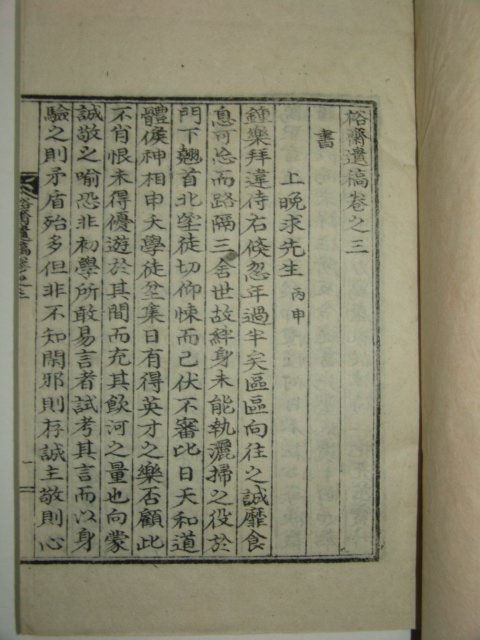 裕齋遺稿卷之三
書
上晚求先生 丙申
鍾樂拜違侍右倐忽年過半矣區區向往之誠靡食
息可忘而路隔三舍世故絆身未能執灑掃之役於
門下翹首北望徒切仰悚而已伏不審比日天和道
體候神相申夭學徒坌集日有得英才之樂否顧此
不肖恨未得優遊於其間而充其飮河之量也向蒙
誠敬之喻恐非初學所敢易言者試考其言而以身
驗之則矛盾殆多但非不知閑邪則存誠主敬則心
裕齋遺稿卷之三
一